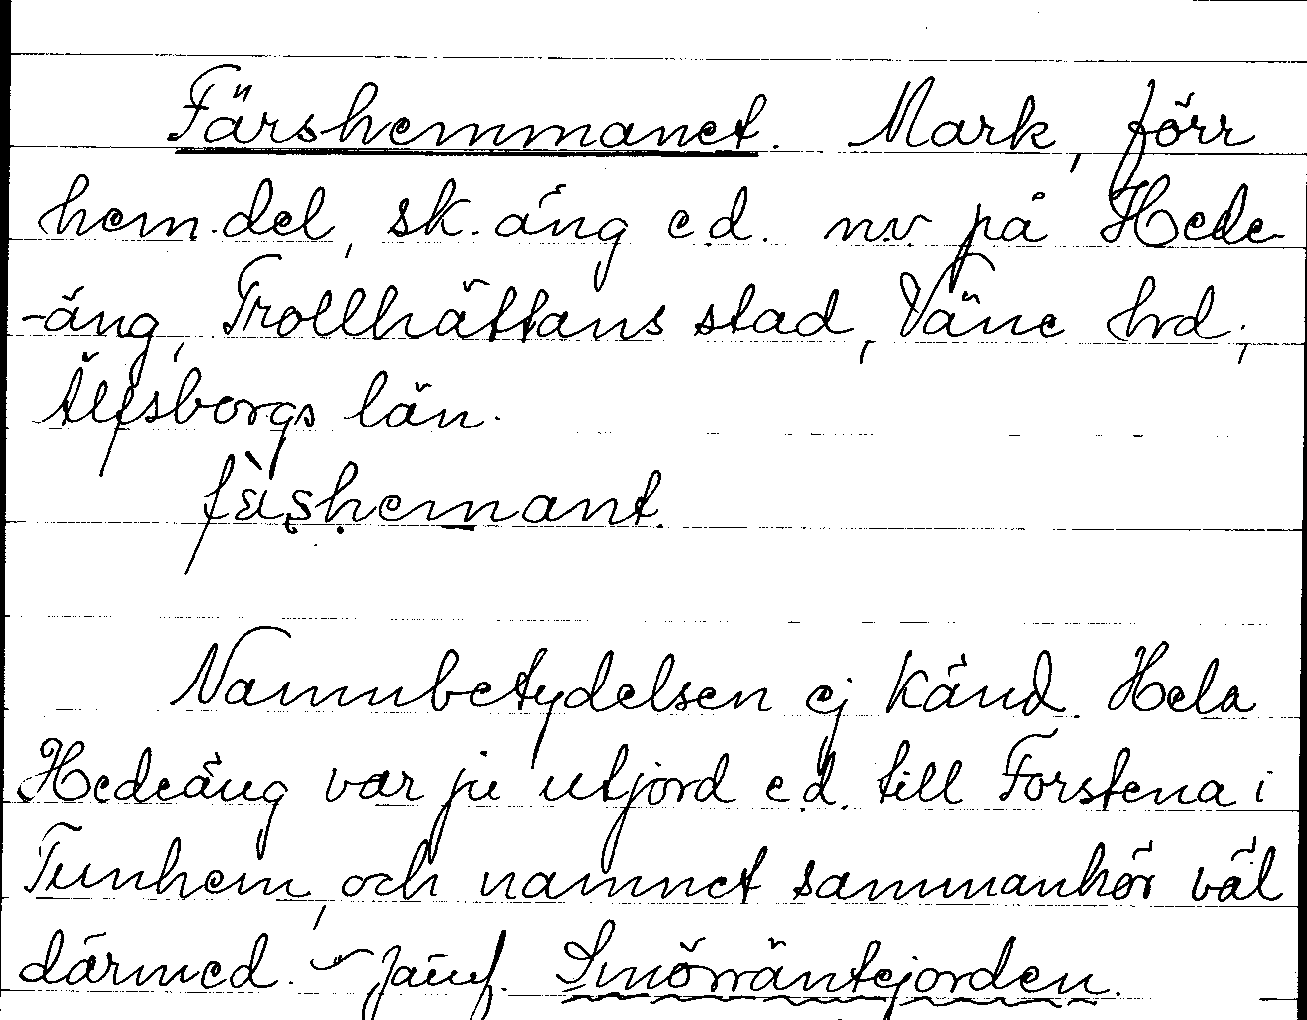 Färshemmanet. Mark, förr
hem.del, sk. äng e.d. nv på Hede-
-äng, Trollhättans stad, Väne hd,
Älfsborgs län.
Namnbetydelsen ej känd. Hela
Hedeäng var ju utjord e.d. till Forstena i
Tunhem, och namnet sammanhör väl
därmed. – Jämf. Smörräntejorden.